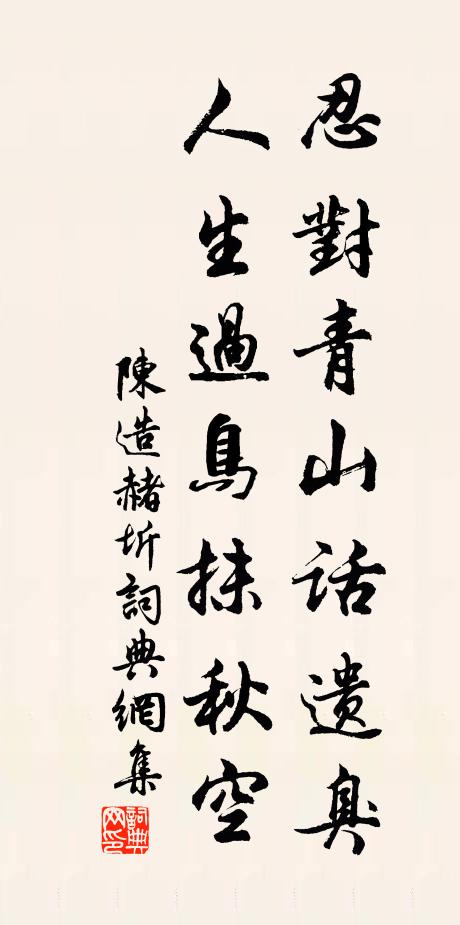 忍對青山話遺臭
人生過鳥抹秋空
陳造赭圻詞典網集
詞典
网印